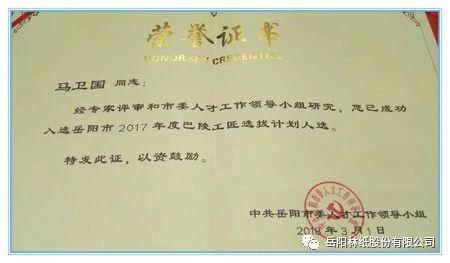 荣誉证书
HONORARY CREDENTIAL
马卫国 同志：
经专家评审和市委人才工作领导小组研究，您已成功
入选岳阳市2017年度巴陵工匠选拔计划人选。
特发此证，以资鼓励。
中共岳阳市委人才工作领导小组
2018年3月1日
岳阳林纸股份有限公司